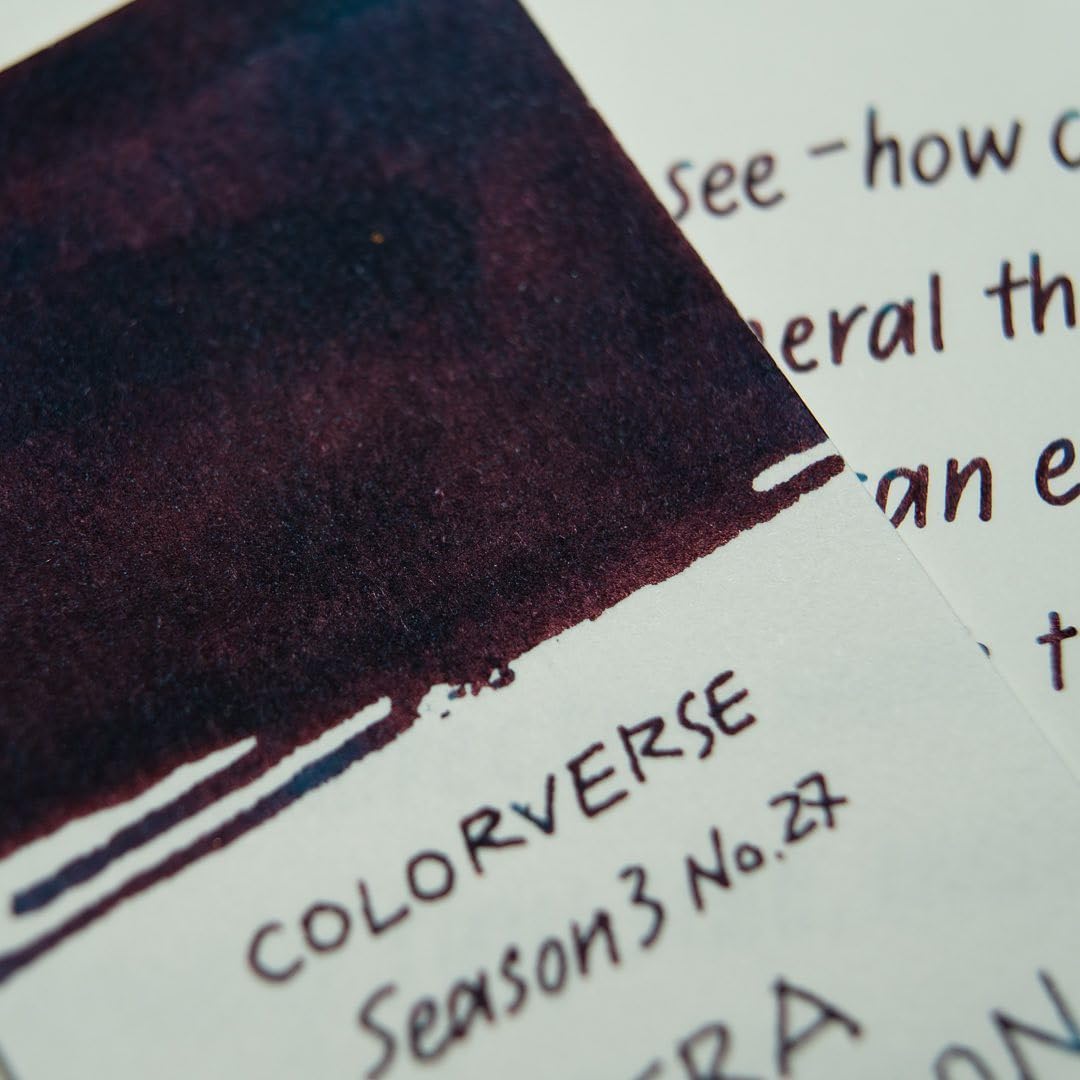 see - how
eral th
an e
t
COLORVERSE
Season 3 No. 27
RA ON